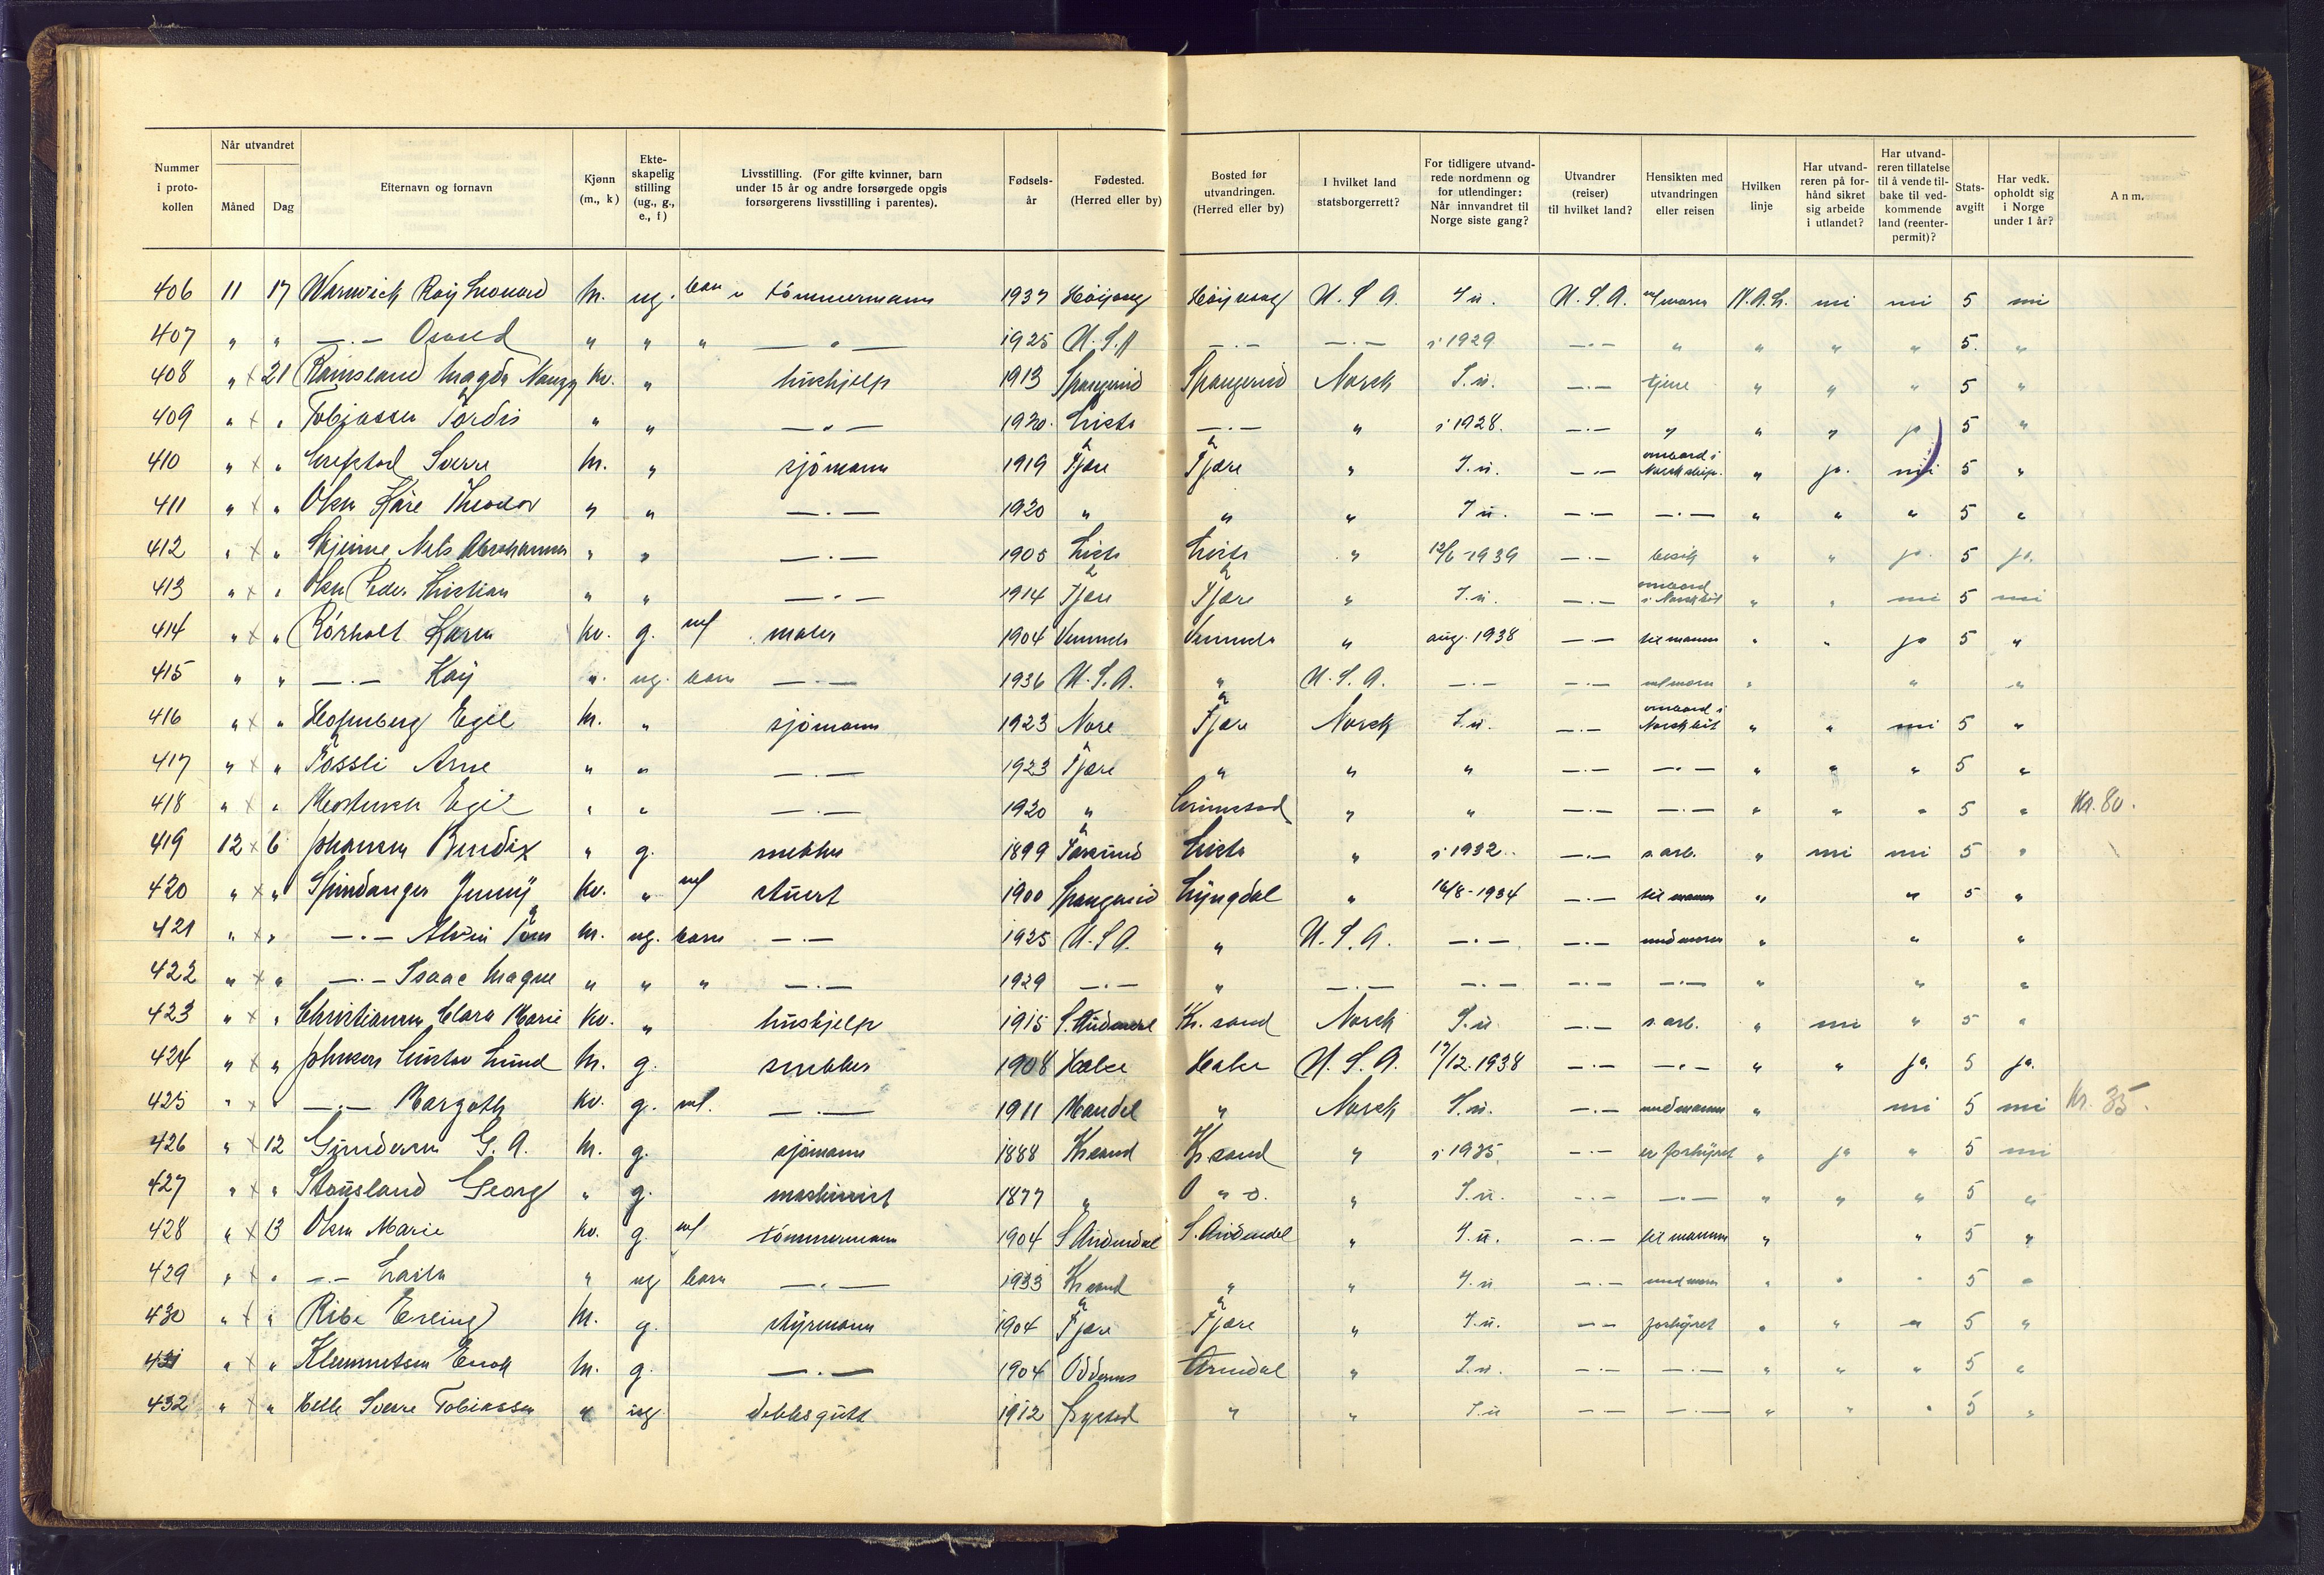 Nummer i proto- kollen | Når utvandret Måned Dag | Efternavn og fornavn | Kjønn (m., k) | Ekte- skapelig stilling (ug., g., e., f) | Livsstilling. (For gifte kvinner, barn under 15 år og andre forsørgede opgis forsørgerens livsstilling i parentes). | Fødsels- år | Fødested. (Herred eller by) | Bosted før utvandringen. (Herred eller by) | I hvilket land statsborgerrett? | For tidligere utvand- rede nordmenn og for utlendinger: Når innvandret til Norge siste gang? | Utvandrer (reiser) til hvilket land? | Hensikten med utvandringen eller reisen | Hvilken linje | Har utvand- reren på for- hånd sikret sig arbeide i utlandet? | Har utvand- reren tillatelse til å vende til- bake til ved- kommende land (reenter- permit)? | Stats- avgift | Har vedk. opholdt sig i Norge under 1 år? | Anm.
406 11 17 Warwick Roy Leonard M. ug. barn " tömmermann 1937 U.S.A. I u. U.S.A. N.A.L. nei nei 5 nei
407 " " —.— " " " —"— 1925 U.S.A —.— —.— i 1929 —.— " " " " 5. "
408 " x 21 Ramsland Magda Kv. " hushjelp 1913 Spangereid Spangereid Norsk I.u. —.— tjene " " " 5 "
409 " x " Tobiassen Tordis " " —"— 1920. Lista —.— " i 1928. —.— " " " ja 5 "
410 " x " Sverre M. " sjömann 1919 Fjære Fjære " I.u. —.— ombord i Norsk skip. " ja. nei 5 "
411 " x " Olsen Kåre Theodor " " —.— 1920 " " " I u. —.— —.— " " " 5 "
412 " x " Nils Abrahamsen " " —.— 1905 Lista Lista " 12/6-1939 —.— besök " " ja. 5 ja.
413 " x " Olsen Peder Kristian " " —"— 1914 Fjære Fjære " I.u. —.— ombord i Norsk båt " " nei 5 nei
414 " x " Rörholt Karen Kv. g. m/ maler 1904 Vennesla Vennesla " aug. 1938 —.— til mann " " ja 5 "
415 " " —.— Kay " ug. barn —.— 1936 U.S.A. " U.S.A. —.— —.— " " "
416 " x " Egil M. " sjömann 1923 Nore Fjære Norsk I.u. —.— ombord i Norsk båt " " nei 5 "
417 " x " Fossli Arne " " —.— 1923 Fjære " " " —.— —.— " " " 5 "
418 " x " Mortensen Egil " " —.— 1920 " Grimstad " " —.— —.— " " " 5 " Kr. 80.
419 12 x 6 Johansen Bendix " g. snekker 1899 Farsund Lista " i 1932. —.— s. arb. " nei nei 5 "
420 " x " Spindanger Jenny Kv. " m/ stuert 1900 Spangereid Lyngdal " 16/8-1934 —.— til mann " " 5 "
421 " x " —.— Alvin Tom M. ug. barn —.— 1925 U.S.A. " U.S.A. —.— —.— med moren " " "
422 " x " —.— Isaac Magne " " " —.— 1929 —.— " —.— —.— —.— —.— " " "
423 " x " Christiansen Clara Marie Kv. " hushjelp 1915 S. Audnedal Kr. sand Norsk I.u. —.— s. arb. " nei " 5 "
424 " x " Johnsen Gustav Lund M. g. snekker 1908 Halse Halse U.S.A. 17/12.1938 —.— —.— " " ja. 5 ja.
425 " x " —.— Margoth Kv. g. m/. —.— 1911 Mandal " Norsk I.u. —.— med mann " nei 5 nei Kr. 35.
426 " x 12 Gundersen G. A. M. g. sjömann 1888 Kr.sand Kr.sand " i 1935 —.— er forhyret " ja " 5 nei
427 " x " Stausland Georg " g. maskinist 1877 " " I.u. —.— —.— " " " 5 "
428 " x 13 Olsen Marie Kv. g. m/ tömmermann 1904 S Audnedal S. Audnedal " I.u. —.— til mannen " " 5 "
429 " x " —.— Laila " ug barn —.— 1933 Kr sand " " I.u —.— med moren " " " 5 "
430 " x " Ribe Erling M. g. styrmann 1904 Fjære Fjære " I.u. —.— forhyret " " " 5 "
431 " x " Klemmetsen Enok M. g. —.— 1904 Oddernes Arendal " I.u. —.— —.— " " " 5 "
432 " x " Helle Sverre Tobiassen " ug dekksgutt 1912 " " I.u —.— —.— " " " 5 "